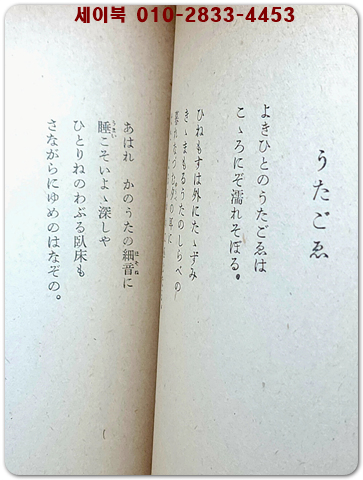 세이북 010-2833-4453
うたごゑ
よきひとのうたごゑは
こゝろにぞ濡れそぼる。
ひねもすは外にたゝずみ
きゝまもるうたのしらべの
あはれ かのうたの細音に
睡こそいよゝ深しや
ひとりねのわぶる臥床も
さながらにゆめのはなぞの。